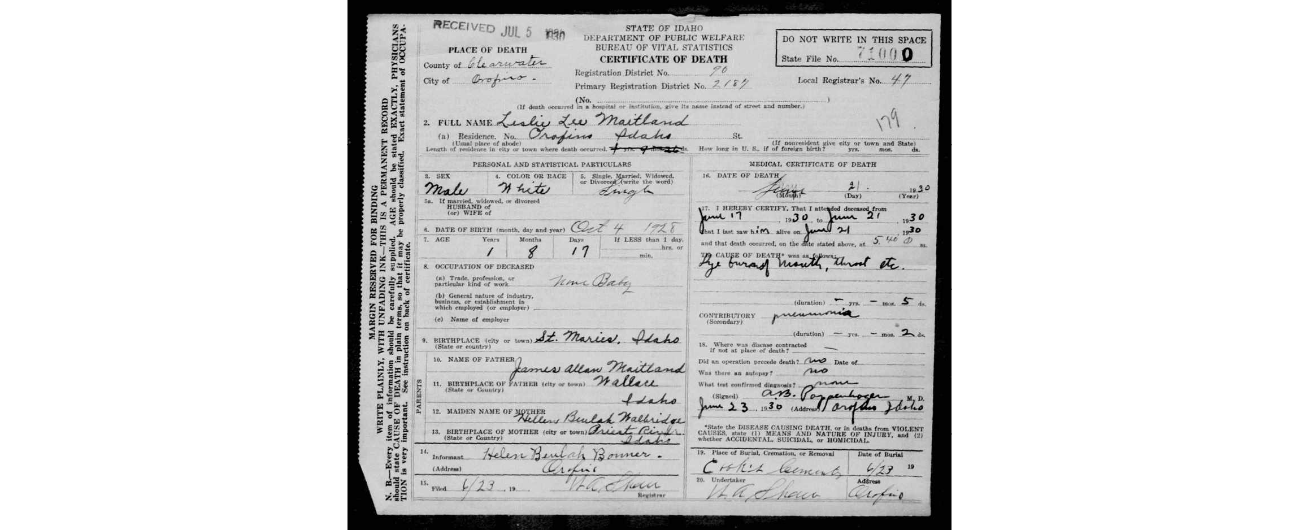 RECEIVED JUL 5 1930
STATE OF IDAHO
DEPARTMENT OF PUBLIC WELFARE
BUREAU OF VITAL STATISTICS
CERTIFICATE OF DEATH
DO NOT WRITE IN THIS SPACE
State File No. 71000
PLACE OF DEATH
County of Clearwater
City of Orofino.
Registration District No. 90
Primary Registration District No. 2187
Local Registrar's No. 47
(No. )
(If death occurred in a hospital or institution, give its name instead of street and number.)
179.
2. FULL NAME Leslie Lee Maitland
(a) Residence. No. Orofino Idaho St.
(Usual place of abode)
(If nonresident give city or town and State)
Length of residence in city or town where death occurred. ds.
How long in U. S., if of foreign birth? yrs. mos. ds.
MARGIN RESERVED FOR BINDING
WRITE PLAINLY, WITH UNFADING INK—THIS IS A PERMANENT RECORD
N. B.—Every item of information should be carefully supplied. AGE should be stated EXACTLY, PHYSICIANS
should state CAUSE OF DEATH in plain terms, so that it may be properly classified. Exact statement of OCCUPA-
TION is very important. See instruction on back of certificate.
PERSONAL AND STATISTICAL PARTICULARS
3. SEX
Male
4. COLOR OR RACE
White
5. Single, Married, Widowed,
or Divorced (write the word)
Single
5a. If married, widowed, or divorced
HUSBAND of
(or) WIFE of
6. DATE OF BIRTH (month, day and year) Oct 4 1928
7. AGE Years Months Days If LESS than 1 day,
hrs. or
min.
1 8 17
8. OCCUPATION OF DECEASED
(a) Trade, profession, or
particular kind of work None Baby
(b) General nature of industry,
business, or establishment in
which employed (or employer)
(c) Name of employer
9. BIRTHPLACE (city or town) St. Maries, Idaho
(State or country)
PARENTS
10. NAME OF FATHER
James Allan Maitland
11. BIRTHPLACE OF FATHER (city or town) Wallace
(State or Country) Idaho
12. MAIDEN NAME OF MOTHER
Hellen Beulah Walbridge
13. BIRTHPLACE OF MOTHER (city or town) Priest River
(State or Country) Idaho
14.
Informant Helen Beulah Bonner.
(Address) Orofino
15.
Filed 6/23, 19 W. A. Shaw
Registrar
MEDICAL CERTIFICATE OF DEATH
16. DATE OF DEATH
June 21. 1930
(Month) (Day) (Year)
17. I HEREBY CERTIFY, That I attended deceased from
June 17, 1930, to June 21, 1930
that I last saw him alive on June 21, 1930
and that death occurred, on the date stated above, at 5.40 m.
The CAUSE OF DEATH* was as follows:
Lye burn of mouth, throat etc.
(duration) – yrs. – mos. 5 ds.
CONTRIBUTORY pneumonia
(Secondary)
(duration) – yrs. – mos. 2 ds.
18. Where was disease contracted
If not at place of death? –
Did an operation precede death? no Date of
Was there an autopsy? no
What test confirmed diagnosis? none
(Signed) M. D.
June 23, 1930 (Address) Orofino Idaho
*State the DISEASE CAUSING DEATH, or in deaths from VIOLENT
CAUSES, state (1) MEANS AND NATURE OF INJURY, and (2)
whether ACCIDENTAL, SUICIDAL, or HOMICIDAL.
19. Place of Burial, Cremation, or Removal
Date of Burial
6/23 19
20. Undertaker
W. A. Shaw
Address
Orofino